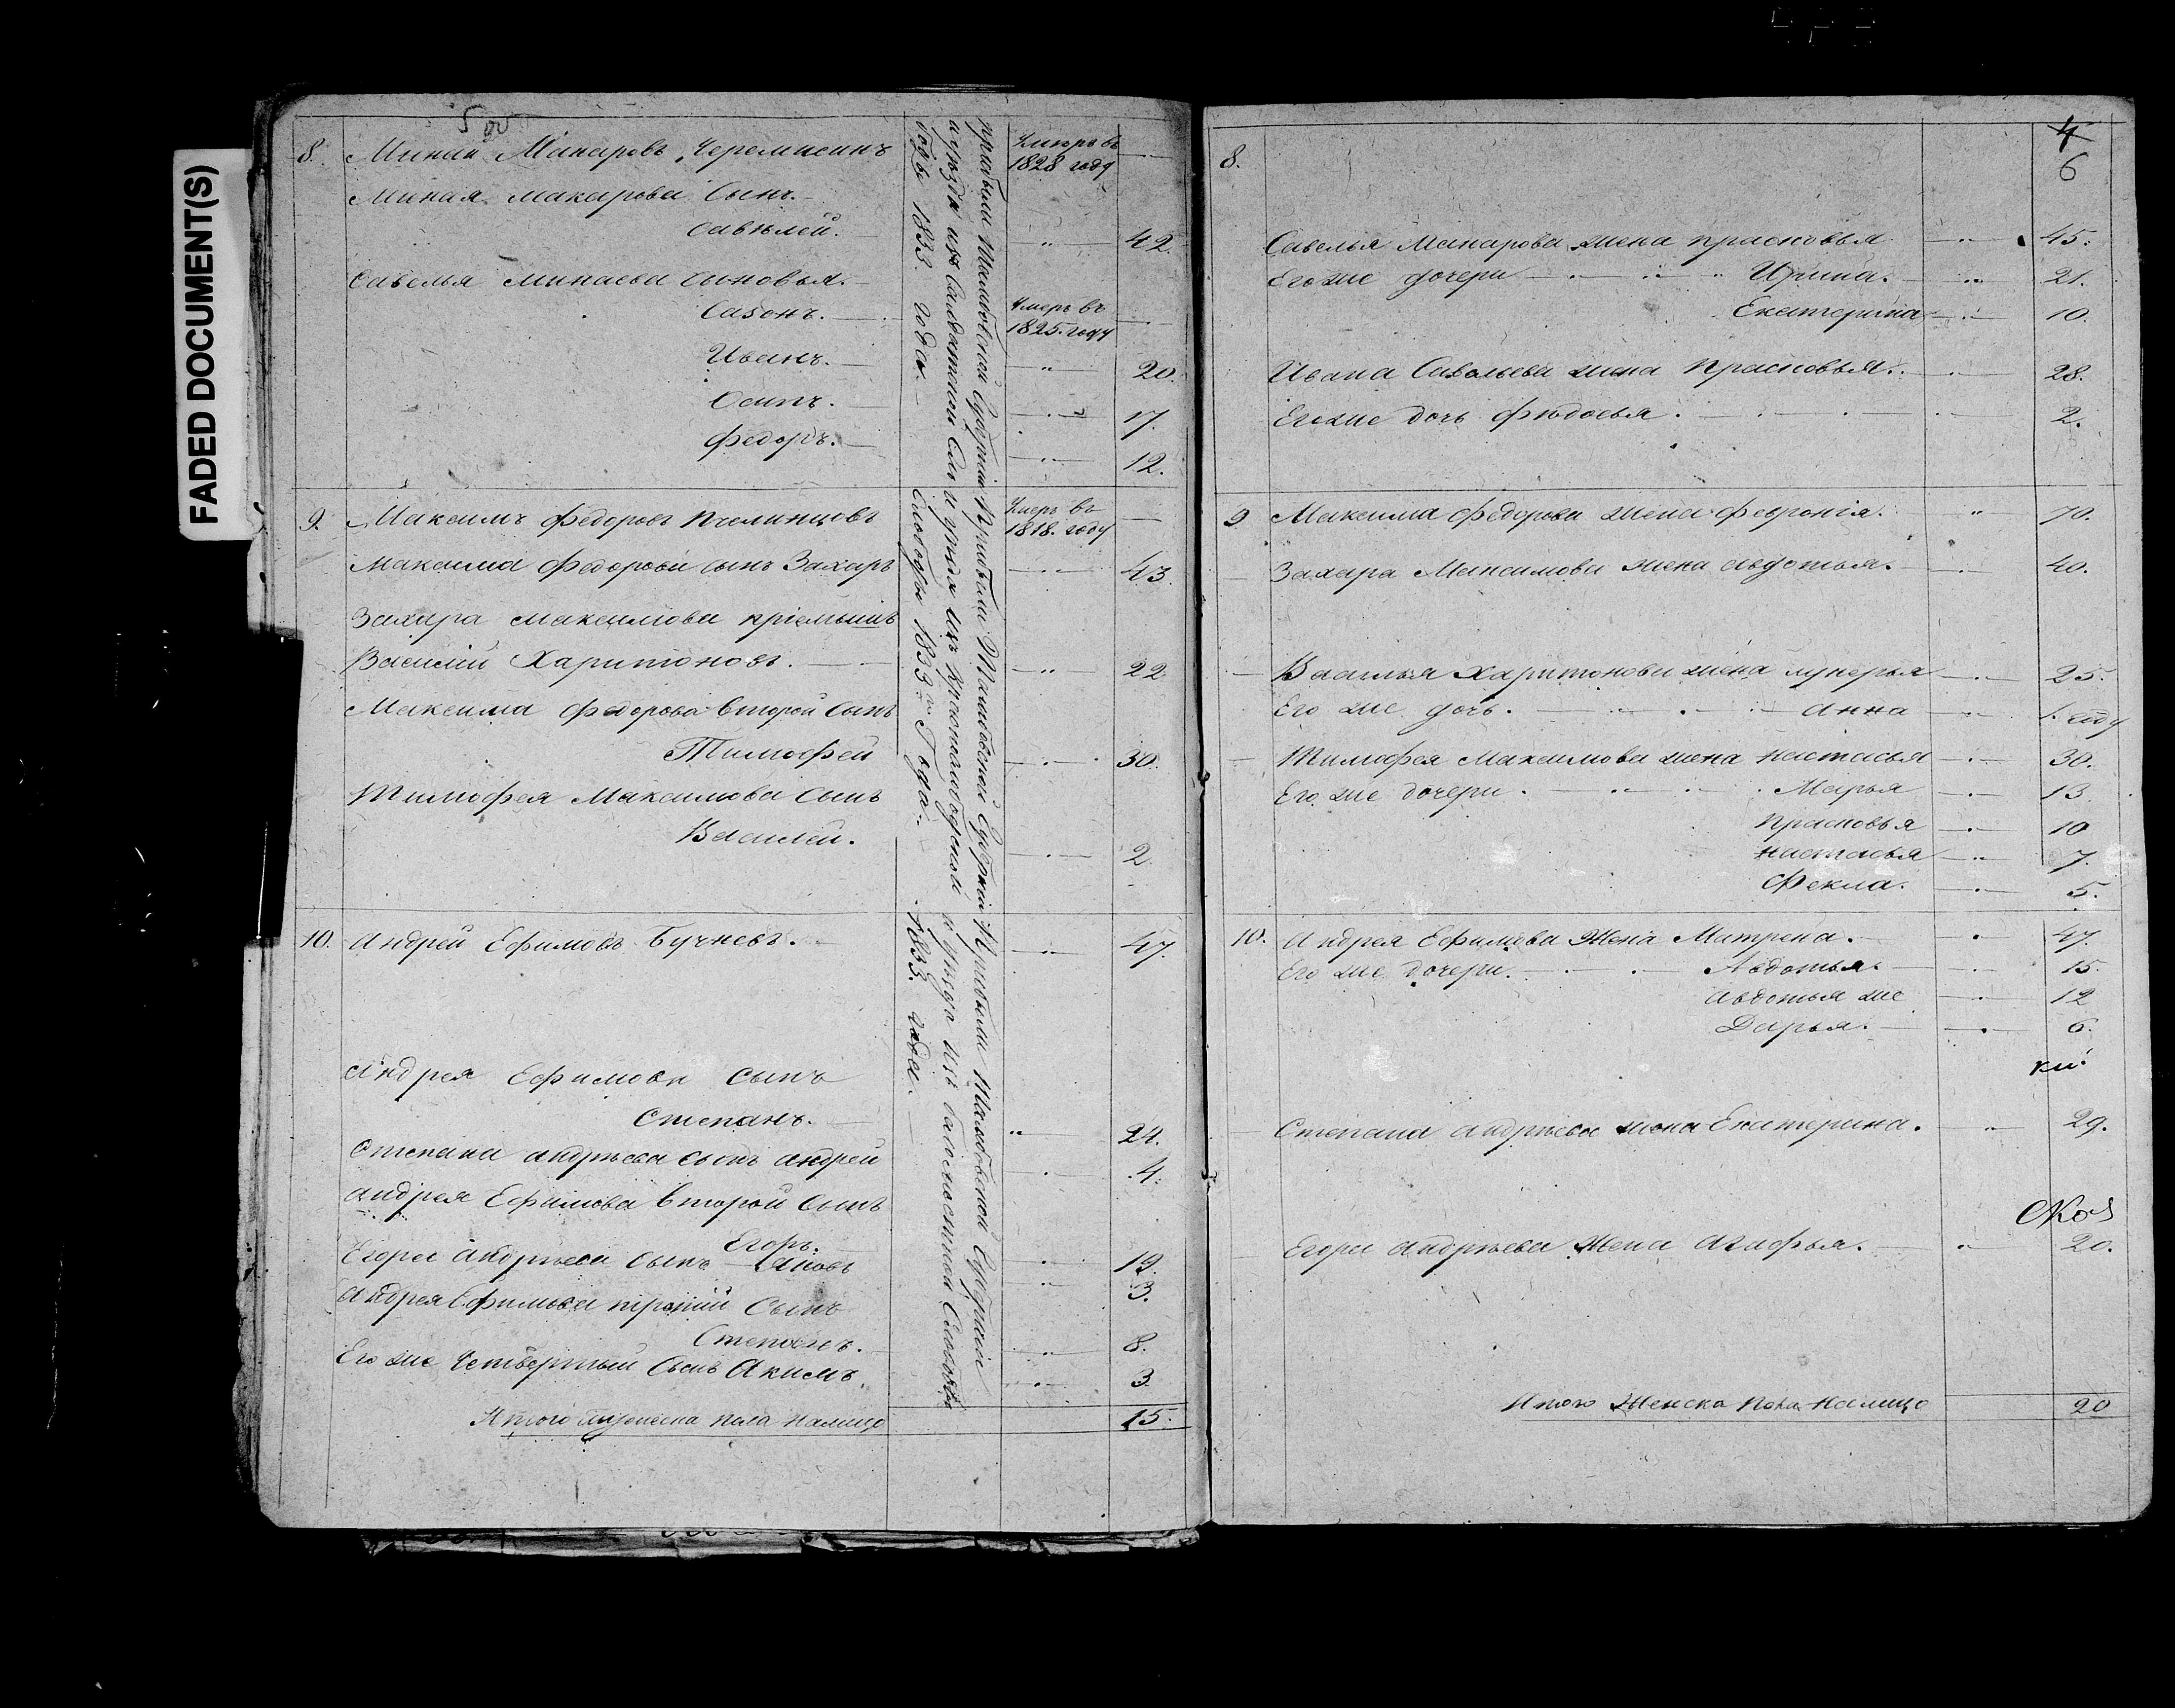 FADED DOCUMENT(S)
5 об
8. Минай Макаровъ Черемисинъ — Умеръ въ 1828 году —
Миная Макарова Сынъ.
Савелей. — 42
Савелья Минаева Сыновья.
Сазонъ. — Умеръ въ 1825. году —
Иванъ. — 20.
Осипъ. — 17.
Федоръ. — 12.
9. Максимъ Федоровъ Пчелинцовъ — Умеръ въ 1818. году —
Максима Федорова сынъ Захаръ — 43
Захара Максимова пріемышъ
Василій Харитоновъ. — 22
Максима Федорова второй Сынъ
Тимофей — 30.
Тимофея Максимова Сынъ
Василей. — 2
10. Андрей Ефимовъ Бучневъ. — 47.
Андрея Ефимова Сынъ
Степанъ. — 24.
Степана Андреева сынъ Андрей — 4.
Андрея Ефимова второй Сынъ
Егоръ. — 19.
Егора Андреева Сынъ — Яковъ — 3.
Андрея Ефимова третий Сынъ
Степанъ. — 8.
Его же Четвертый Сынъ Акимъ. — 3.
Итого мужеска пола налицо 15.
прибыли Тамбовской Губерніи
уезда изъ
Слободы 1833. года.
Прибыли Тамбовской Губерніи
уезда изъ
Слободы 1833 Года.
Прибыли Тамбовской Губерніи
уезда изъ Слободы
1833 года.
4
6
8.
Савелья Макарова жена Прасковья — 45.
Его же дочери — Ирина. — 21.
Екатерина — 10.
Ивана Савельева жена Прасковья. — 28.
Его же дочь Федосья. — 2.
9 Максима Федорова жена Феврония. 70.
Захара Максимова жена Авдотья. — 40.
Василья Харитонова жена Лукерья — 25.
Его же дочь. — Анна — 1. году
Тимофея Максимова жена Настасья — 30.
Его же дочери. — Марья — 13.
Прасковья — 10
Настасья — 7.
Фекла. — 5.
10. Андрея Ефимова Жена Матрена. 47.
Его же дочери. — Авдотья. — 15.
Авдотья же — 12
Дарья. — 6.
Степана Андреева жена Екатерина. 29.
Егора Андреева Жена Агафья. 20.
Итого Женска Пола Налицо 20